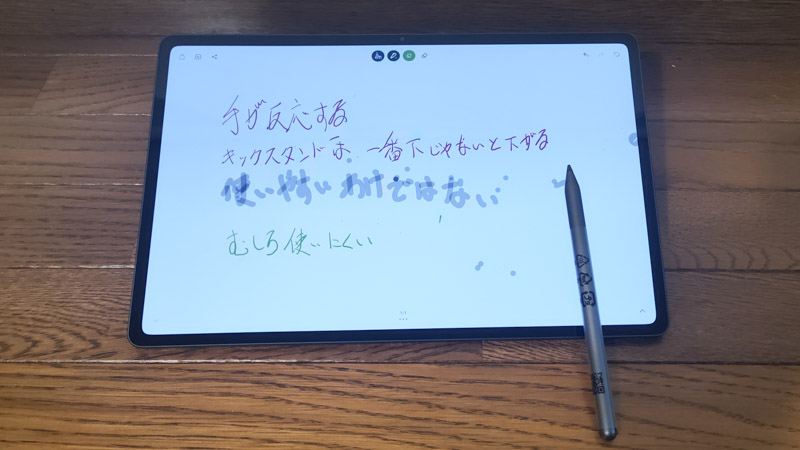 手が反応する
キックスタンドは 一番下じゃないと下がる
使いやすいわけではない
むしろ使いにくい